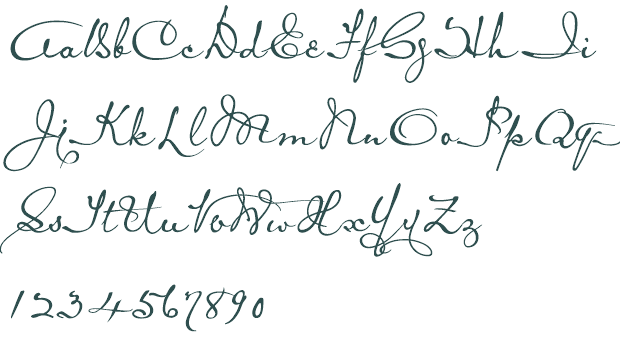 AaBbCcDdEeFfGgHhIi
JjKkLlMmNnOoPpQq
SsTtUuVvWwXxYyZz
1234567890